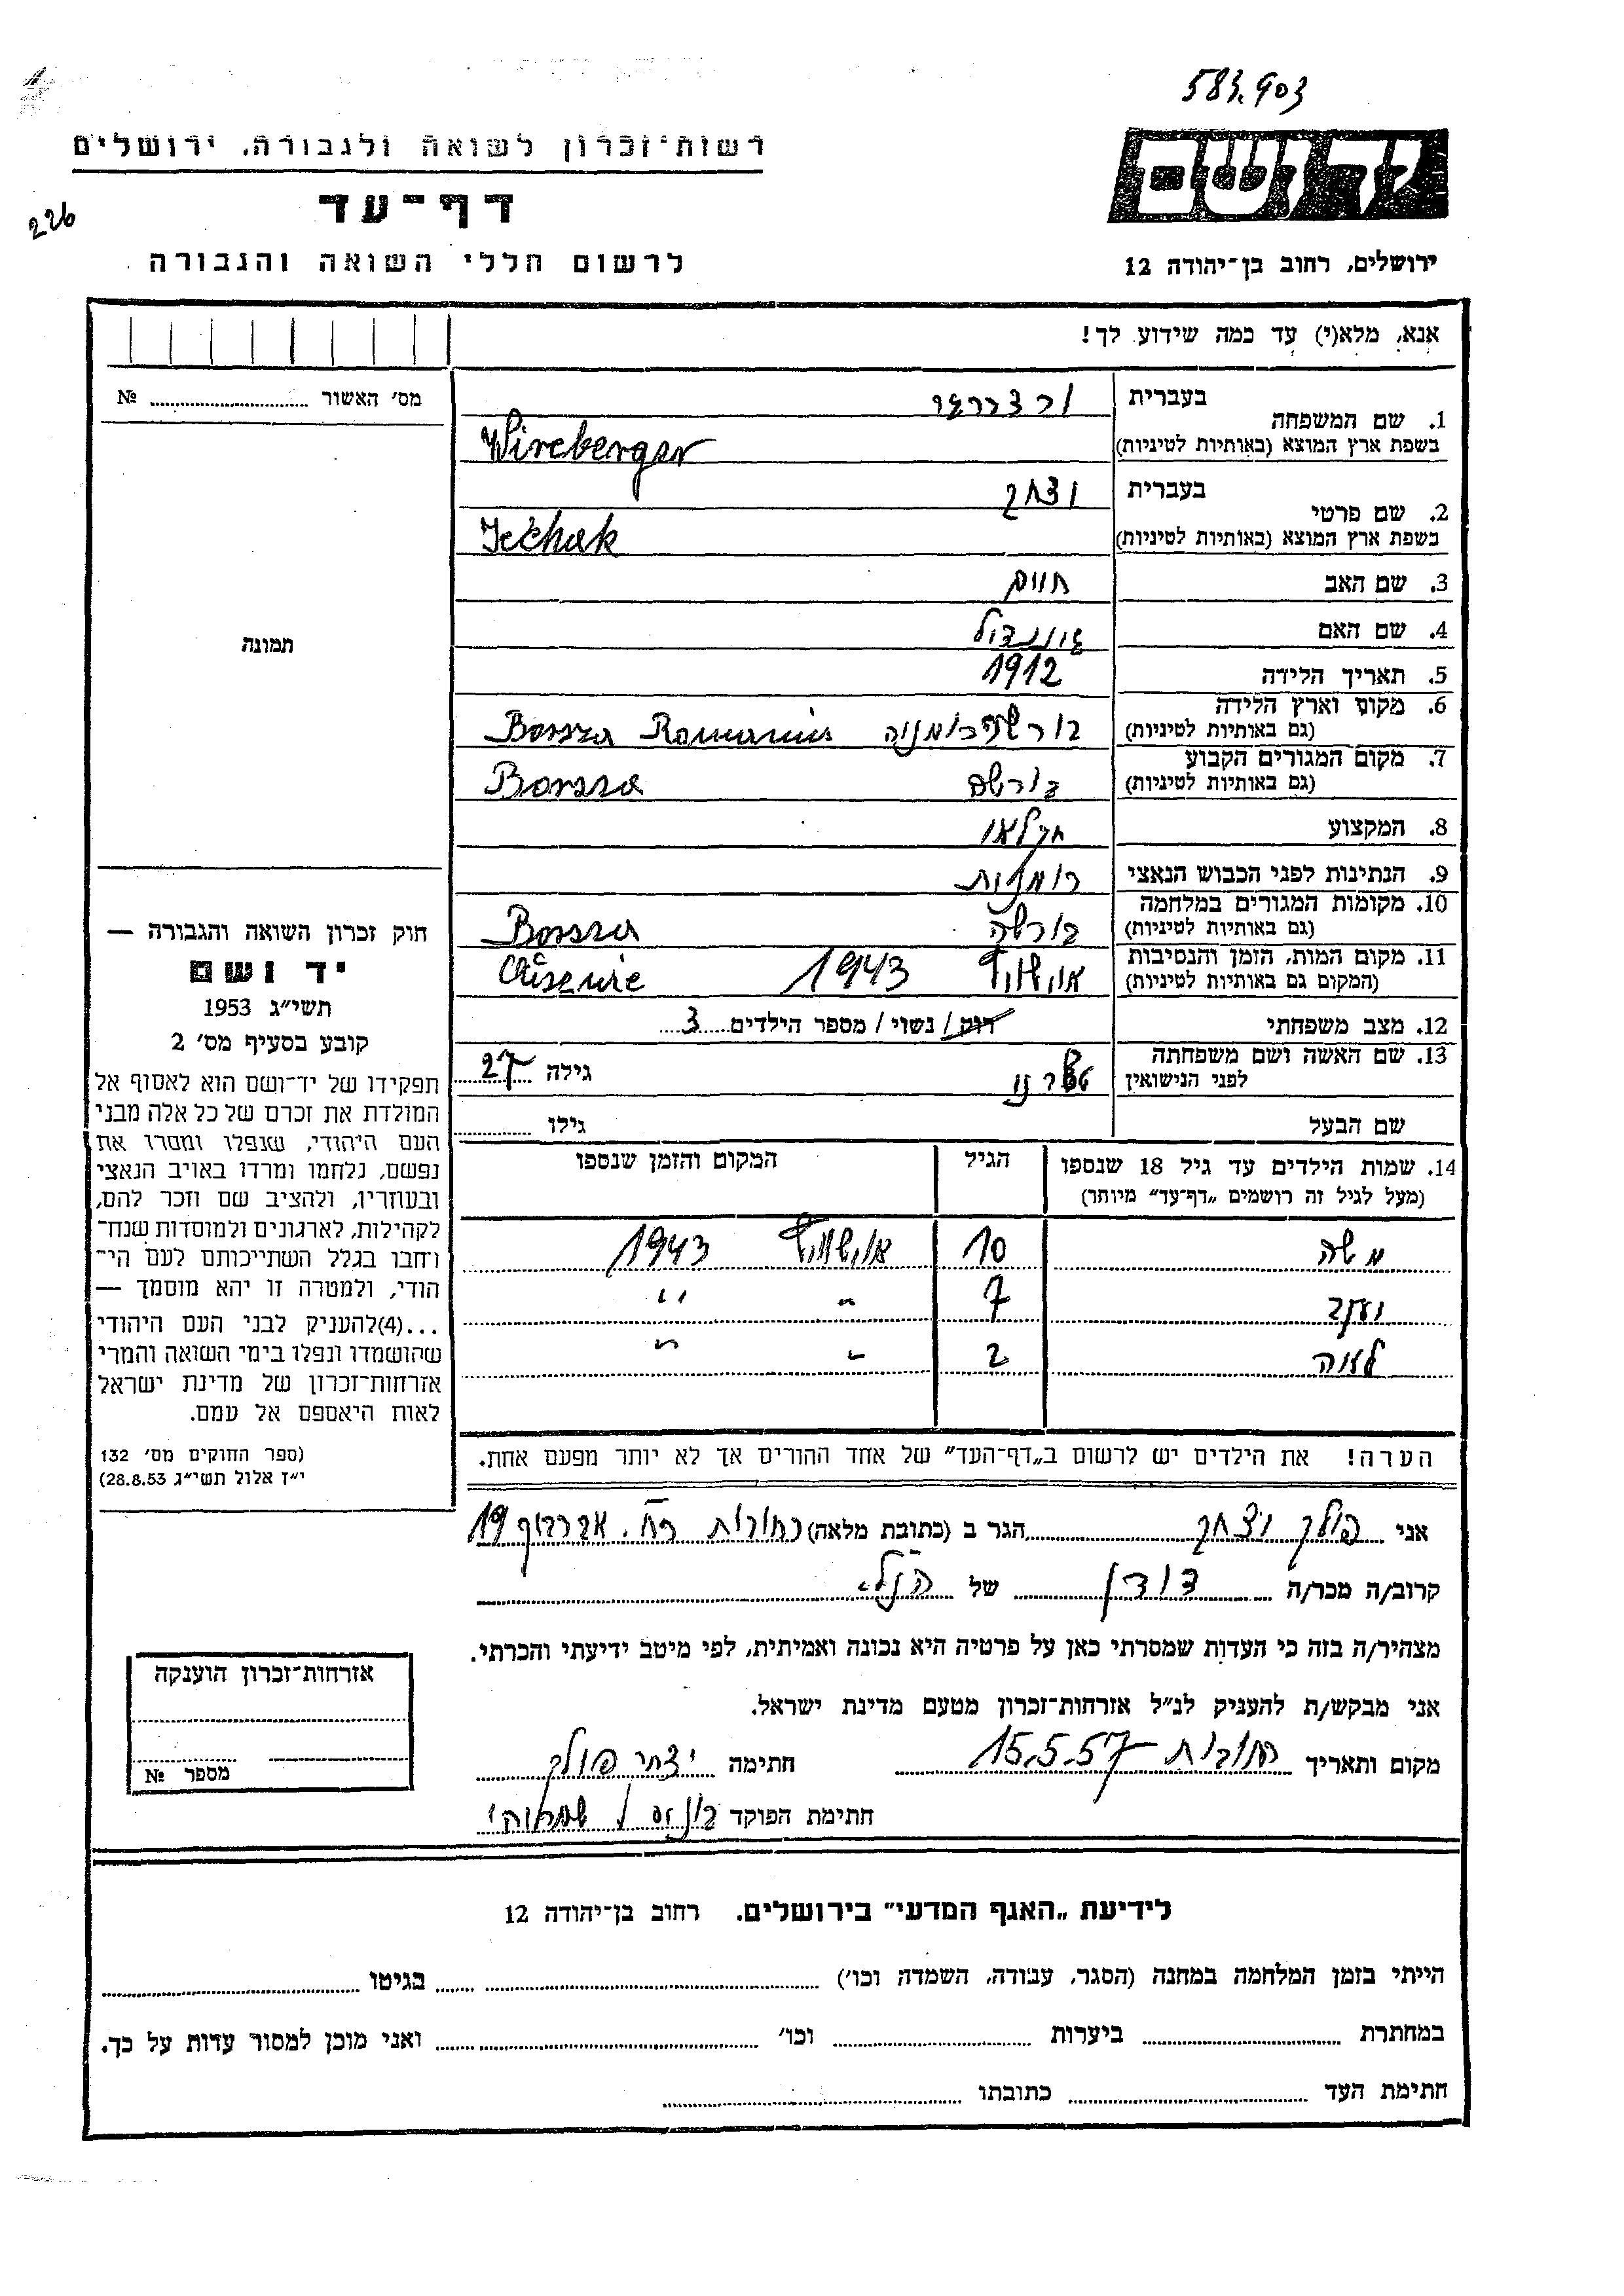 583.903
רשות־זכרון לשואה ולגבורה, ירושלים
יד ושם
דף־עד
226
לרשום חללי השואה והגבורה
ירושלים, רחוב בן־יהודה 12
אנא, מלא(י) עד כמה שידוע לך!
מס׳ האשור № 
תמונה
חוק זכרון השואה והגבורה —
יד ושם
תשי״ג 1953
קובע בסעיף מס׳ 2
תפקידו של יד־ושם הוא לאסוף אל
המולדת את זכרם של כל אלה מבני
העם היהודי, שנפלו ומסרו את
נפשם, נלחמו ומרדו באויב הנאצי
ובעוזריו, ולהציב שם וזכר להם,
לקהילות, לארגונים ולמוסדות שנח־
רחבו בגלל השתייכותם לעם הי־
הודי, ולמטרה זו יהא מוסמך —
...(4)להעניק לבני העם היהודי
שהושמדו ונפלו בימי השואה והמרי
אזרחות־זכרון של מדינת ישראל
לאות היאספם אל עמם.
(ספר החוקים מס׳ 132
י״ז אלול תשי״ג 28.8.53)
1. שם המשפחה
בעברית
בשפת ארץ המוצא (באותיות לטיניות) Wireberger
2. שם פרטי
בעברית יצחק
בשפת ארץ המוצא (באותיות לטיניות) Iechak
3. שם האב חיים
4. שם האם
5. תאריך הלידה 1912
6. מקום וארץ הלידה
(גם באותיות לטיניות) בורשה רומניה Borsza Romania
7. מקום המגורים הקבוע
(גם באותיות לטיניות) בורשה Borsza
8. המקצוע חקלאי
9. הנתינות לפני הכבוש הנאצי רומנית
10. מקומות המגורים במלחמה
(גם באותיות לטיניות) בורשה Borsza
11. מקום המות, הזמן והנסיבות
(המקום גם באותיות לטיניות) אושוויץ 1943
12. מצב משפחתי רוק / נשוי / מספר הילדים 3
13. שם האשה ושם משפחתה
לפני הנישואין גילה 27
שם הבעל גילו
14. שמות הילדים עד גיל 18 שנספו הגיל המקום והזמן שנספו
(מעל לגיל זה רושמים „דף־עד״ מיוחד)
משה 10 אושוויץ 1943
יעקב 7 " "
לאה 2 " "
הערה! את הילדים יש לרשום ב„דף־העד״ של אחד ההורים אך לא יותר מפעם אחת.
אני פולק יצחק הגר ב (כתובת מלאה) רחובות רח. 19
קרוב/ה מכר/ה דודן של הנ"ל
מצהיר/ה בזה כי העדות שמסרתי כאן על פרטיה היא נכונה ואמיתית, לפי מיטב ידיעתי והכרתי.
אני מבקש/ת להעניק לנ״ל אזרחות־זכרון מטעם מדינת ישראל.
מקום ותאריך רחובות 15.5.57 חתימה יצחק פולק
חתימת הפוקד
אזרחות־זכרון הוענקה
מספר №
לידיעת „האגף המדעי״ בירושלים. רחוב בן־יהודה 12
הייתי בזמן המלחמה במחנה (הסגר, עבודה, השמדה וכו׳) בגיטו
במחתרת ביערות וכו׳ ואני מוכן למסור עדות על כך.
חתימת העד כתובתו